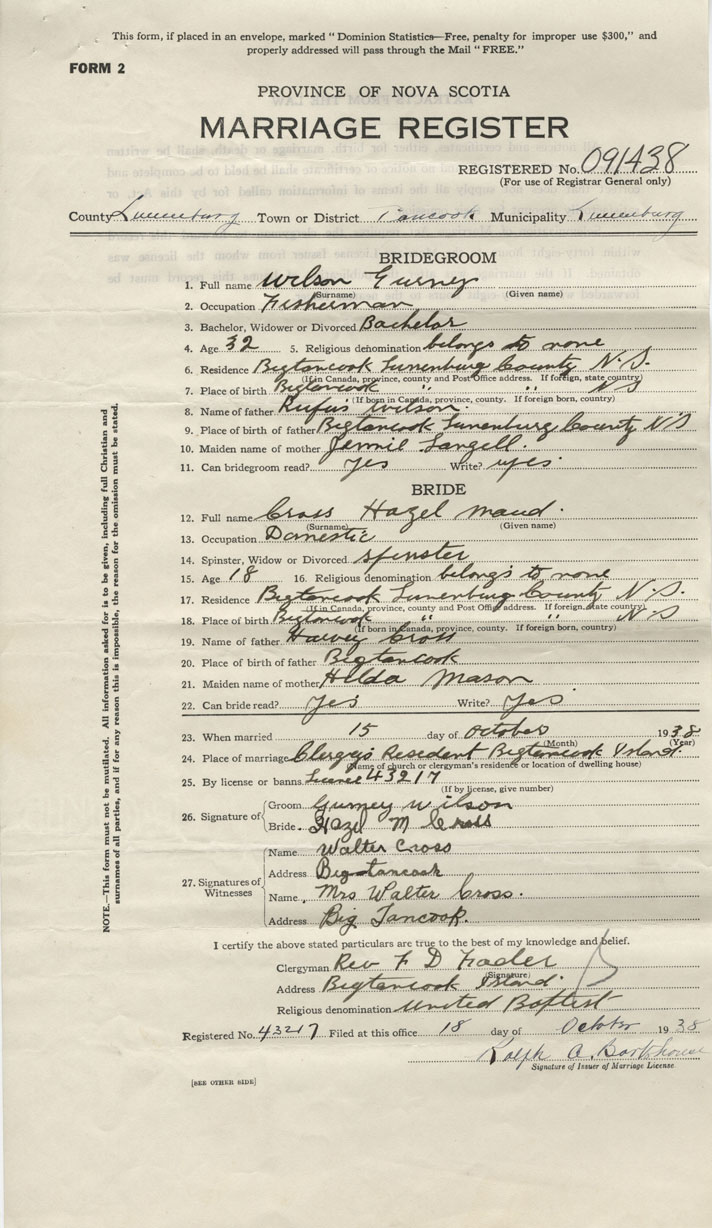 This form, if placed in an envelope, marked "Dominion Statistics—Free, penalty for improper use $300," and
properly addressed will pass through the Mail "FREE."
FORM 2
PROVINCE OF NOVA SCOTIA
MARRIAGE REGISTER
REGISTERED No. 091438
(For use of Registrar General only)
County Lunenburg Town or District Tancook Municipality Lunenburg
BRIDEGROOM
1. Full name Wilson Gurney
(Surname) (Given name)
2. Occupation Fisherman
3. Bachelor, Widower or Divorced Bachelor
4. Age 32 5. Religious denomination belongs to none
6. Residence Bigtancook Lunenburg County N.S.
(If in Canada, province, county and Post Office address. If foreign, state country)
7. Place of birth Bigtancook " " N S
(If born in Canada, province, county. If foreign born, country)
8. Name of father Rufus Wilson.
9. Place of birth of father Bigtancook Lunenburg County N S
10. Maiden name of mother Jennie Langell.
11. Can bridegroom read? yes Write? yes
BRIDE
12. Full name Cross Hazel maud.
(Surname) (Given name)
13. Occupation Domestic
14. Spinster, Widow or Divorced spinster
15. Age 18 16. Religious denomination belongs to none
17. Residence Bigtancook Lunenburg County N.S.
(If in Canada, province, county and Post Office address. If foreign, state country)
18. Place of birth Bigtancook " " N S
(If born in Canada, province, county. If foreign born, country)
19. Name of father Harvey Cross
20. Place of birth of father Bigtancook
21. Maiden name of mother Hilda Mason
22. Can bride read? Yes Write? Yes
23. When married 15 day of October 1938
(Month) (Year)
24. Place of marriage Clergys Resedent Bigtancook Island.
(Name of church or clergyman's residence or location of dwelling house)
25. By license or banns 43217
(If by license, give number)
26. Signature of Groom Gurney Wilson
Bride Hazel M Cross
27. Signatures of Witnesses
Name Walter Cross
Address Bigtancook
Name Mrs Walter Cross.
Address Big Tancook.
I certify the above stated particulars are true to the best of my knowledge and belief.
Clergyman Rev F D Fader
(Signature)
Address Bigtancook Island.
Religious denomination United Baptist
Registered No. 43217 Filed at this office 18 day of October 1938
Ralph A. Barkhouse
Signature of Issuer of Marriage License
[SEE OTHER SIDE]
NOTE.—This form must not be mutilated. All information asked for is to be given, including full Christian and
surnames of all parties, and if for any reason this is impossible, the reason for the omission must be stated.